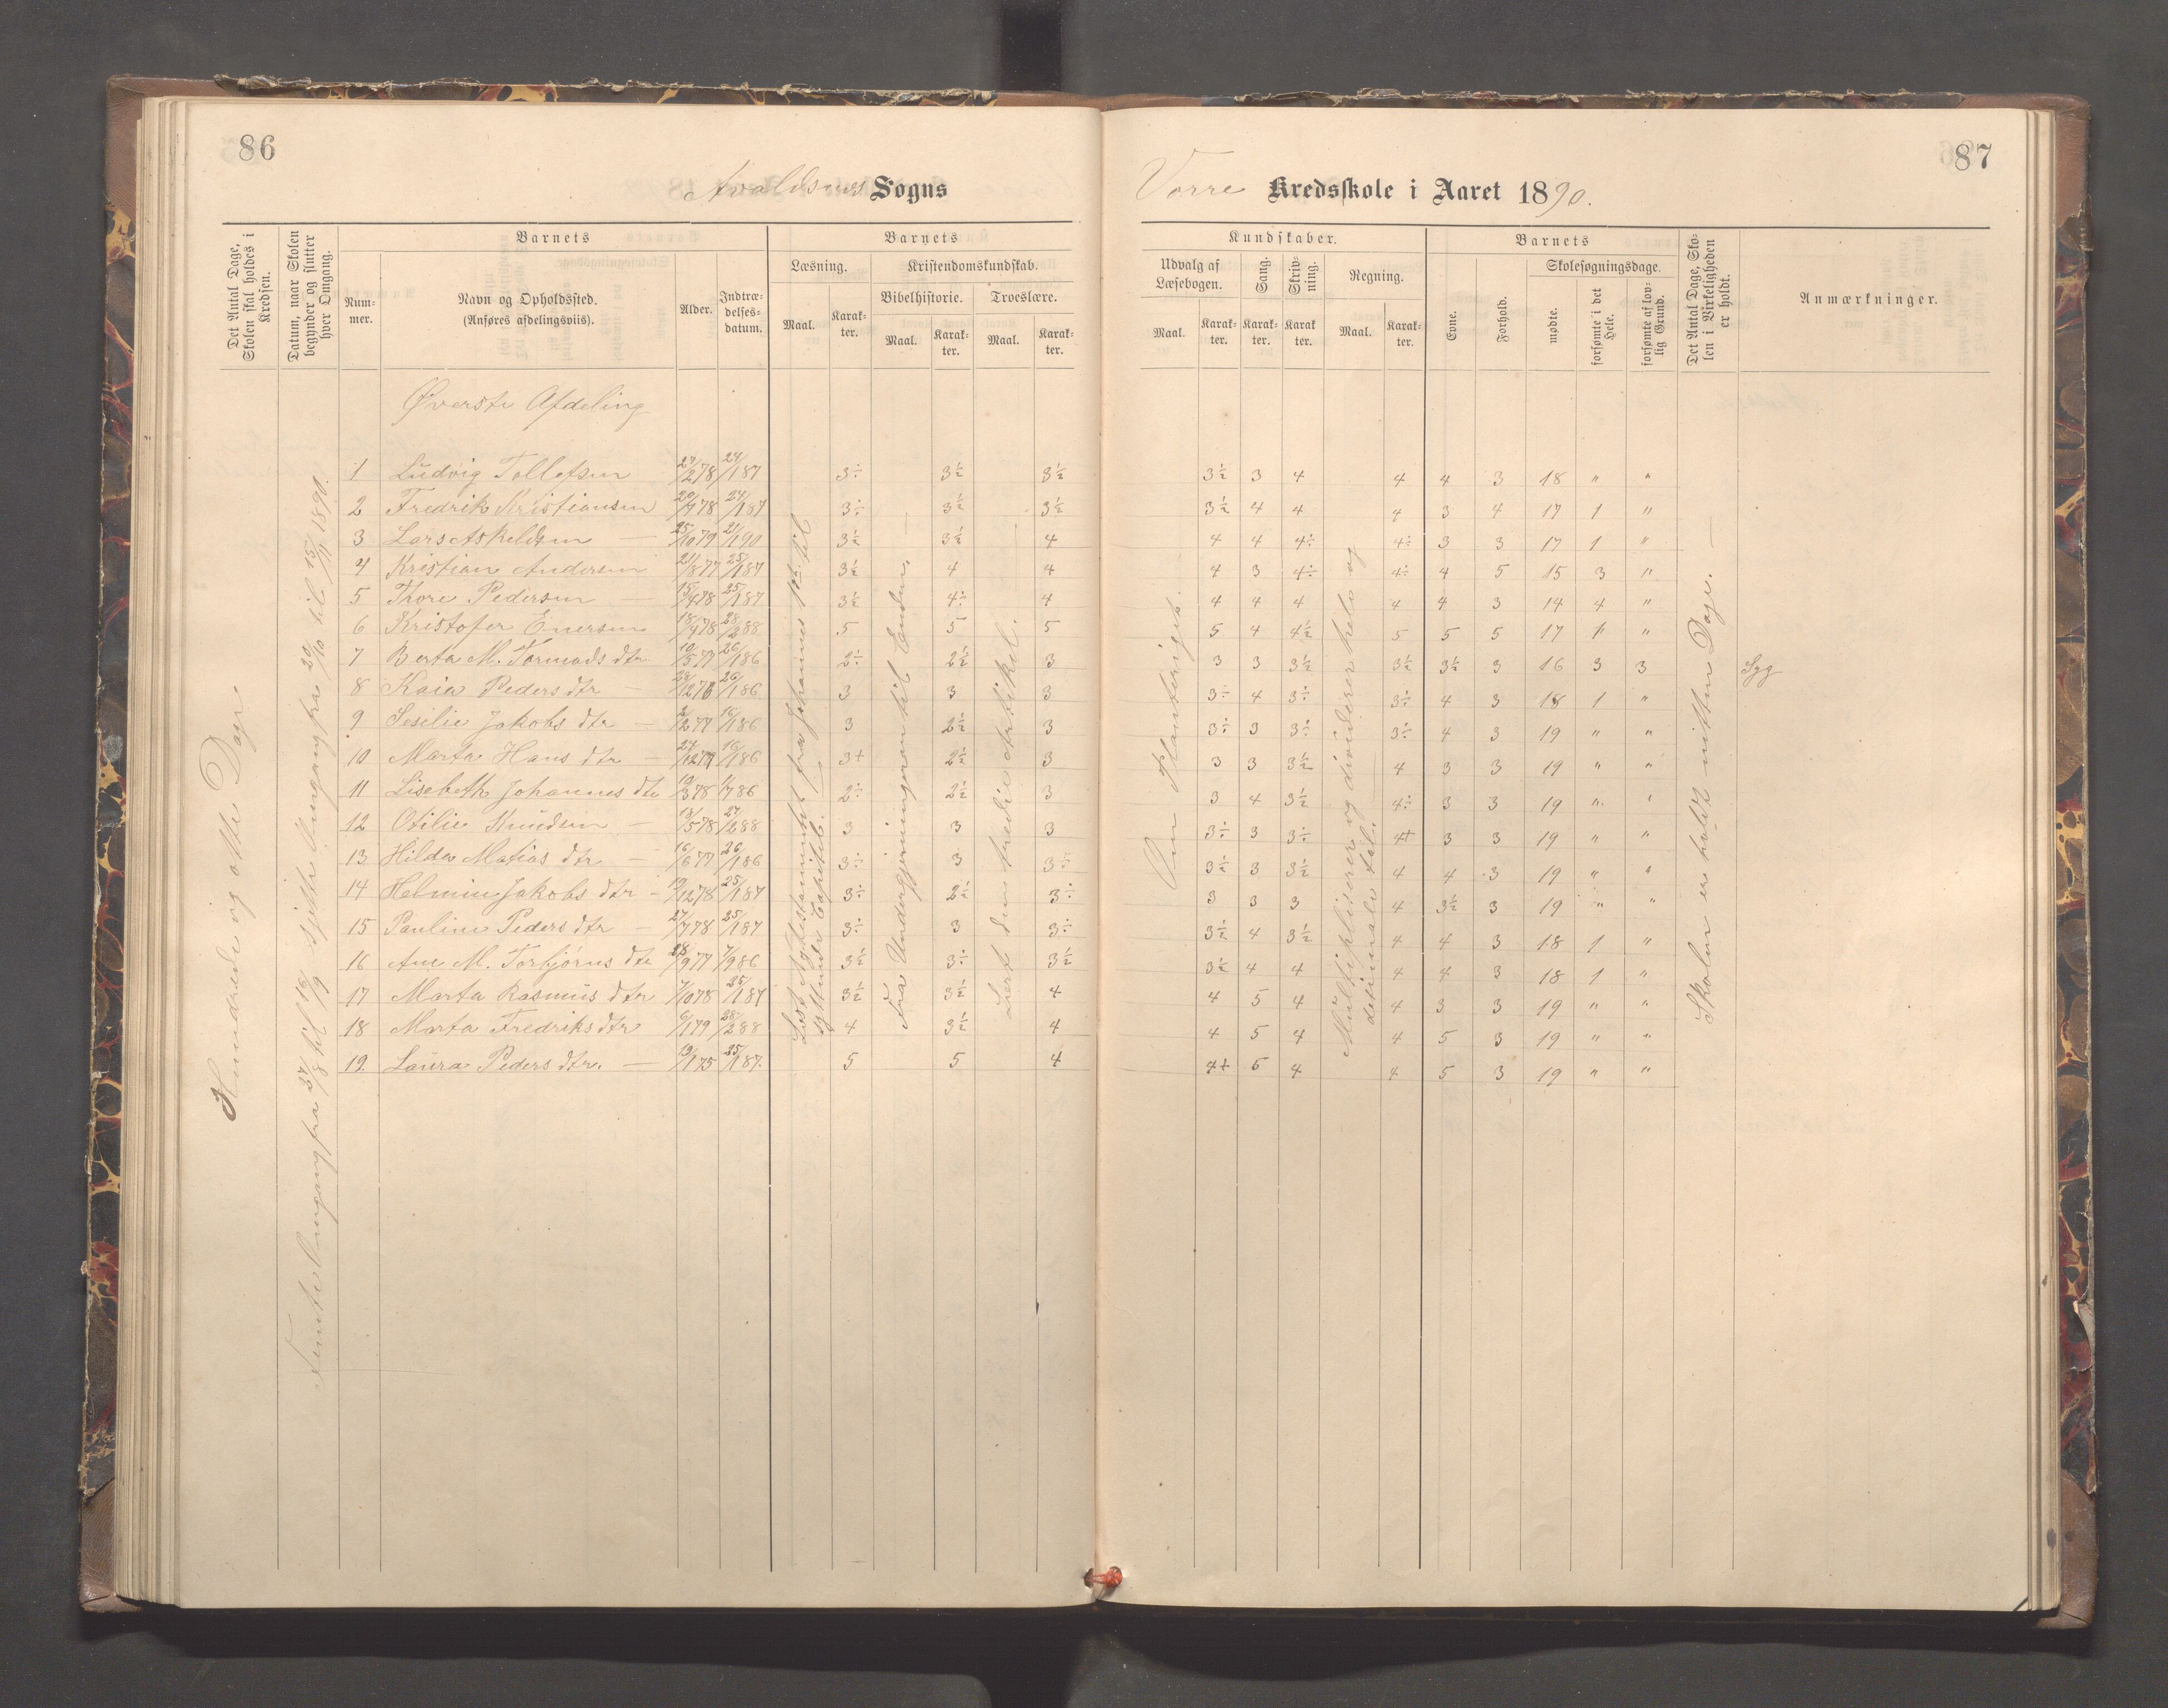 86
Avaldsnes Sogns
Det Antal Dage, Skolen skal holdes i Kredsen.
Datum, naar Skolen begynder og slutter hver Omgang.
Barnets
Num-mer.
Navn og Opholdssted.
(Anføres afdelingsviis).
Alder.
Indtræ-delses-datum.
Barnets
Læsning.
Kristendomskundskab.
Bibelhistorie.
Troeslære.
Maal. Karak-ter. Maal. Karak-ter. Maal. Karak-ter.
Øverste Afdeling
1 Ludvig Tollefsen 27/2 78 24/1 87 3÷ 3½ 3½
2 Fredrik Kristiansen 20/7 78 24/1 87 3÷ 3½ 3½
3 Lars Askeldsen — 25/10 79 21/1 90 3½ 3½ 4
4 Kristian Andersen 21/8 77 25/1 87 3½ 4 4
5 Thore Pedersen — 15/4 78 25/1 87 3½ 4÷ 4
6 Kristofer Enersen 18/4 78 28/2 88 5 5 5
7 Berta M. Tormods dtr 10/5 77 26/1 86 2÷ 2½ 3
8 Kaia Peders dtr — 28/12 76 26/1 86 3 3 3
9 Sesilie Jakobs dtr — 2/2 77 16/1 86 3 2½ 3
10 Marta Hans dtr — 24/12 77 16/1 86 3+ 2½ 3
11 Lisebeth Johannes dtr 19/3 78 1/7 86 2÷ 2½ 3
12 Otilie Knudsen — 13/5 78 27/2 88 3 3 3
13 Hilda Matias dtr — 16/6 77 26/1 86 3÷ 3 3÷
14 Helmine Jakobs dtr — 19/12 78 25/1 87 3÷ 2½ 3÷
15 Pauline Peders dtr — 27/7 78 25/1 87 3÷ 3 3÷
16 Ane M. Torbjørns dtr 28/9 77 7/9 86 3½ 3÷ 3½
17 Marta Rasmus dtr 7/10 78 25/1 87 3½ 3½ 4
18 Marta Fredriks dtr 6/1 79 28/2 88 4 3½ 4
19. Laura Peders dtr. — 19/1 75 25/1 87. 5 5 4
Hundrede og otte Dage
Femte Omgang fra 27/8 til 16/9 sjette Omgang fra 20/10 til 15/11 1890.
Læst Nytestamente fra Johannes 1ste til
syttende Capitel.
Fra Undergjerningerne til Enden. —
Lært den tredie Artikel. —
87
Vorre Kredsskole i Aaret 1890.
Kundskaber.
Udvalg af Læsebogen.
Sang.
Skriv-ning.
Regning.
Maal. Karak-ter. Karak-ter. Karak-ter. Maal. Karak-ter.
Barnets
Evne.
Forhold.
Skolesøgningsdage.
mødte.
forsømte i det Hele.
forsømte af lov-lig Grund.
Det Antal Dage, Sko-len i Virkeligheden er holdt.
Anmærkninger.
3½ 3 4 4 4 3 18 " "
3½ 4 4 4 3 4 17 1 "
4 4 4÷ 4÷ 3 3 17 1 "
4 3 4÷ 4÷ 4 5 15 3 "
4 4 4 4 4 3 14 4 "
5 4 4½ 5 5 5 17 1 "
3 3 3½ 3½ 3½ 3 16 3 3 Syg
3÷ 4 3÷ 3÷ 4 3 18 1 "
3÷ 3 3÷ 3÷ 4 3 19 " "
3 3 3½ 4 3 3 19 " "
3 4 3½ 4÷ 3 3 19 " "
3÷ 3 3÷ 4+ 3 3 19 " "
3½ 3 3½ 4 4 3 19 " "
3 3 3 4 3½ 3 19 " "
3½ 4 3½ 4 4 3 18 1 "
3½ 4 4 4 4 3 18 1 "
4 5 4 4 3 3 19 " "
4 5 4 4 5 3 19 " "
4+ 5 4 4 5 3 19 " "
Om Planteriget.
Multipliserer og dividerer hele og
desimale tal.
Skolen er holdt nitten Dage. —